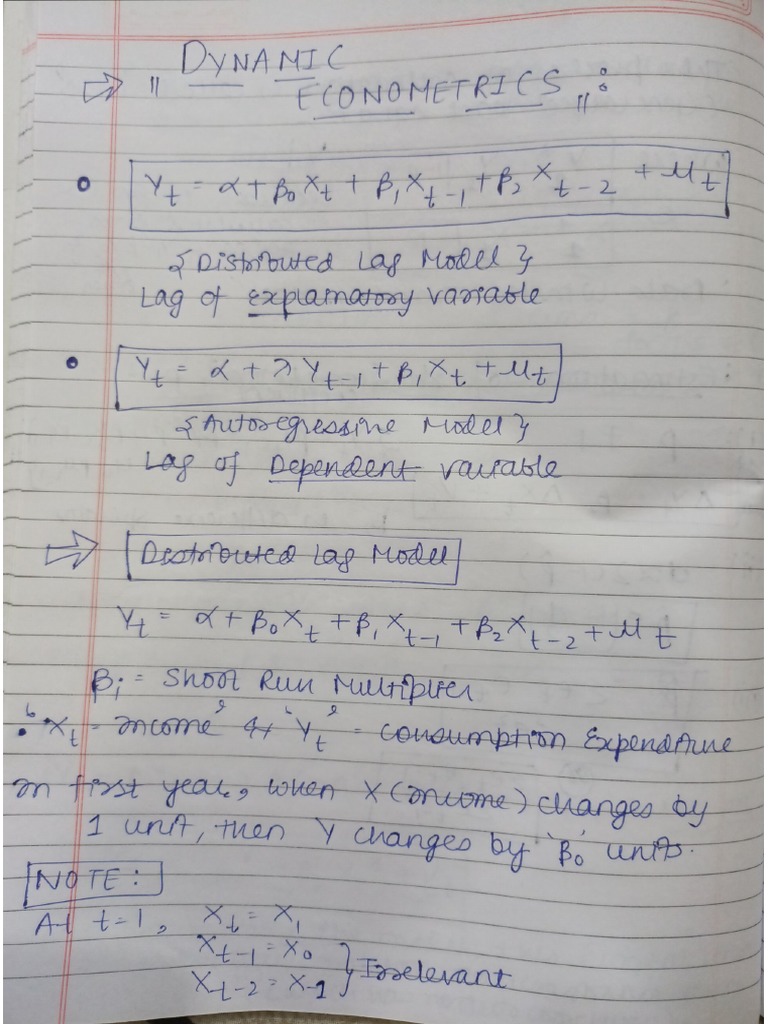 ⇒ " DYNAMIC
ECONOMETRICS ":
• Yt = α + β0 Xt + β1 Xt-1 + β2 Xt-2 + μt
{ Distributed Lag Model }
Lag of explanatory variable
• Yt = α + λ Yt-1 + β1 Xt + μt
{ Autoregressive Model }
Lag of Dependent variable
⇒ Distributed Lag Model
Yt = α + β0 Xt + β1 Xt-1 + β2 Xt-2 + μt
βi = Short Run Multiplier
• 'Xt = income' & 'Yt' = consumption Expenditure
in first year, when X (income) changes by
1 unit, then Y changes by 'β0' units.
NOTE:
At t=1, Xt = X1
Xt-1 = X0
Xt-2 = X-1 } Irrelevant